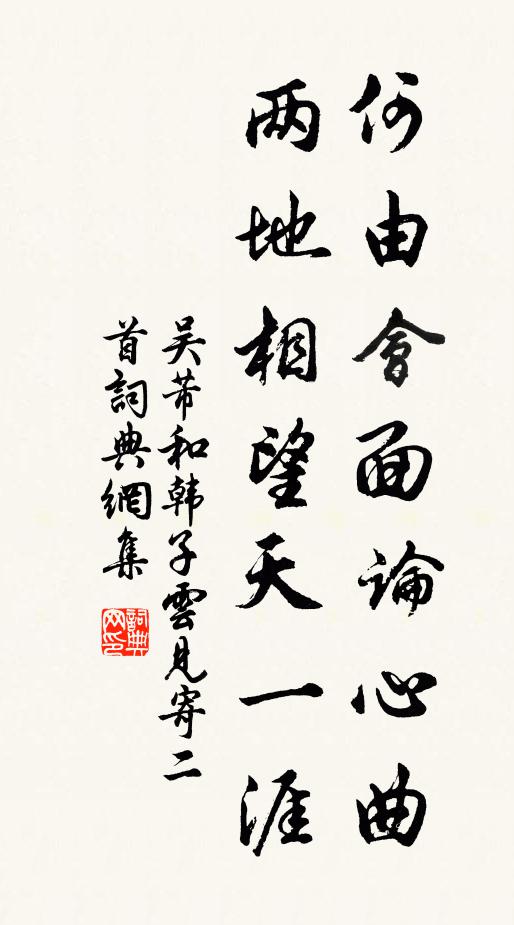 何由會面論心曲
两地相望天一涯
吴芾和韩子雲見寄二
首詞典網集
詞典
网印